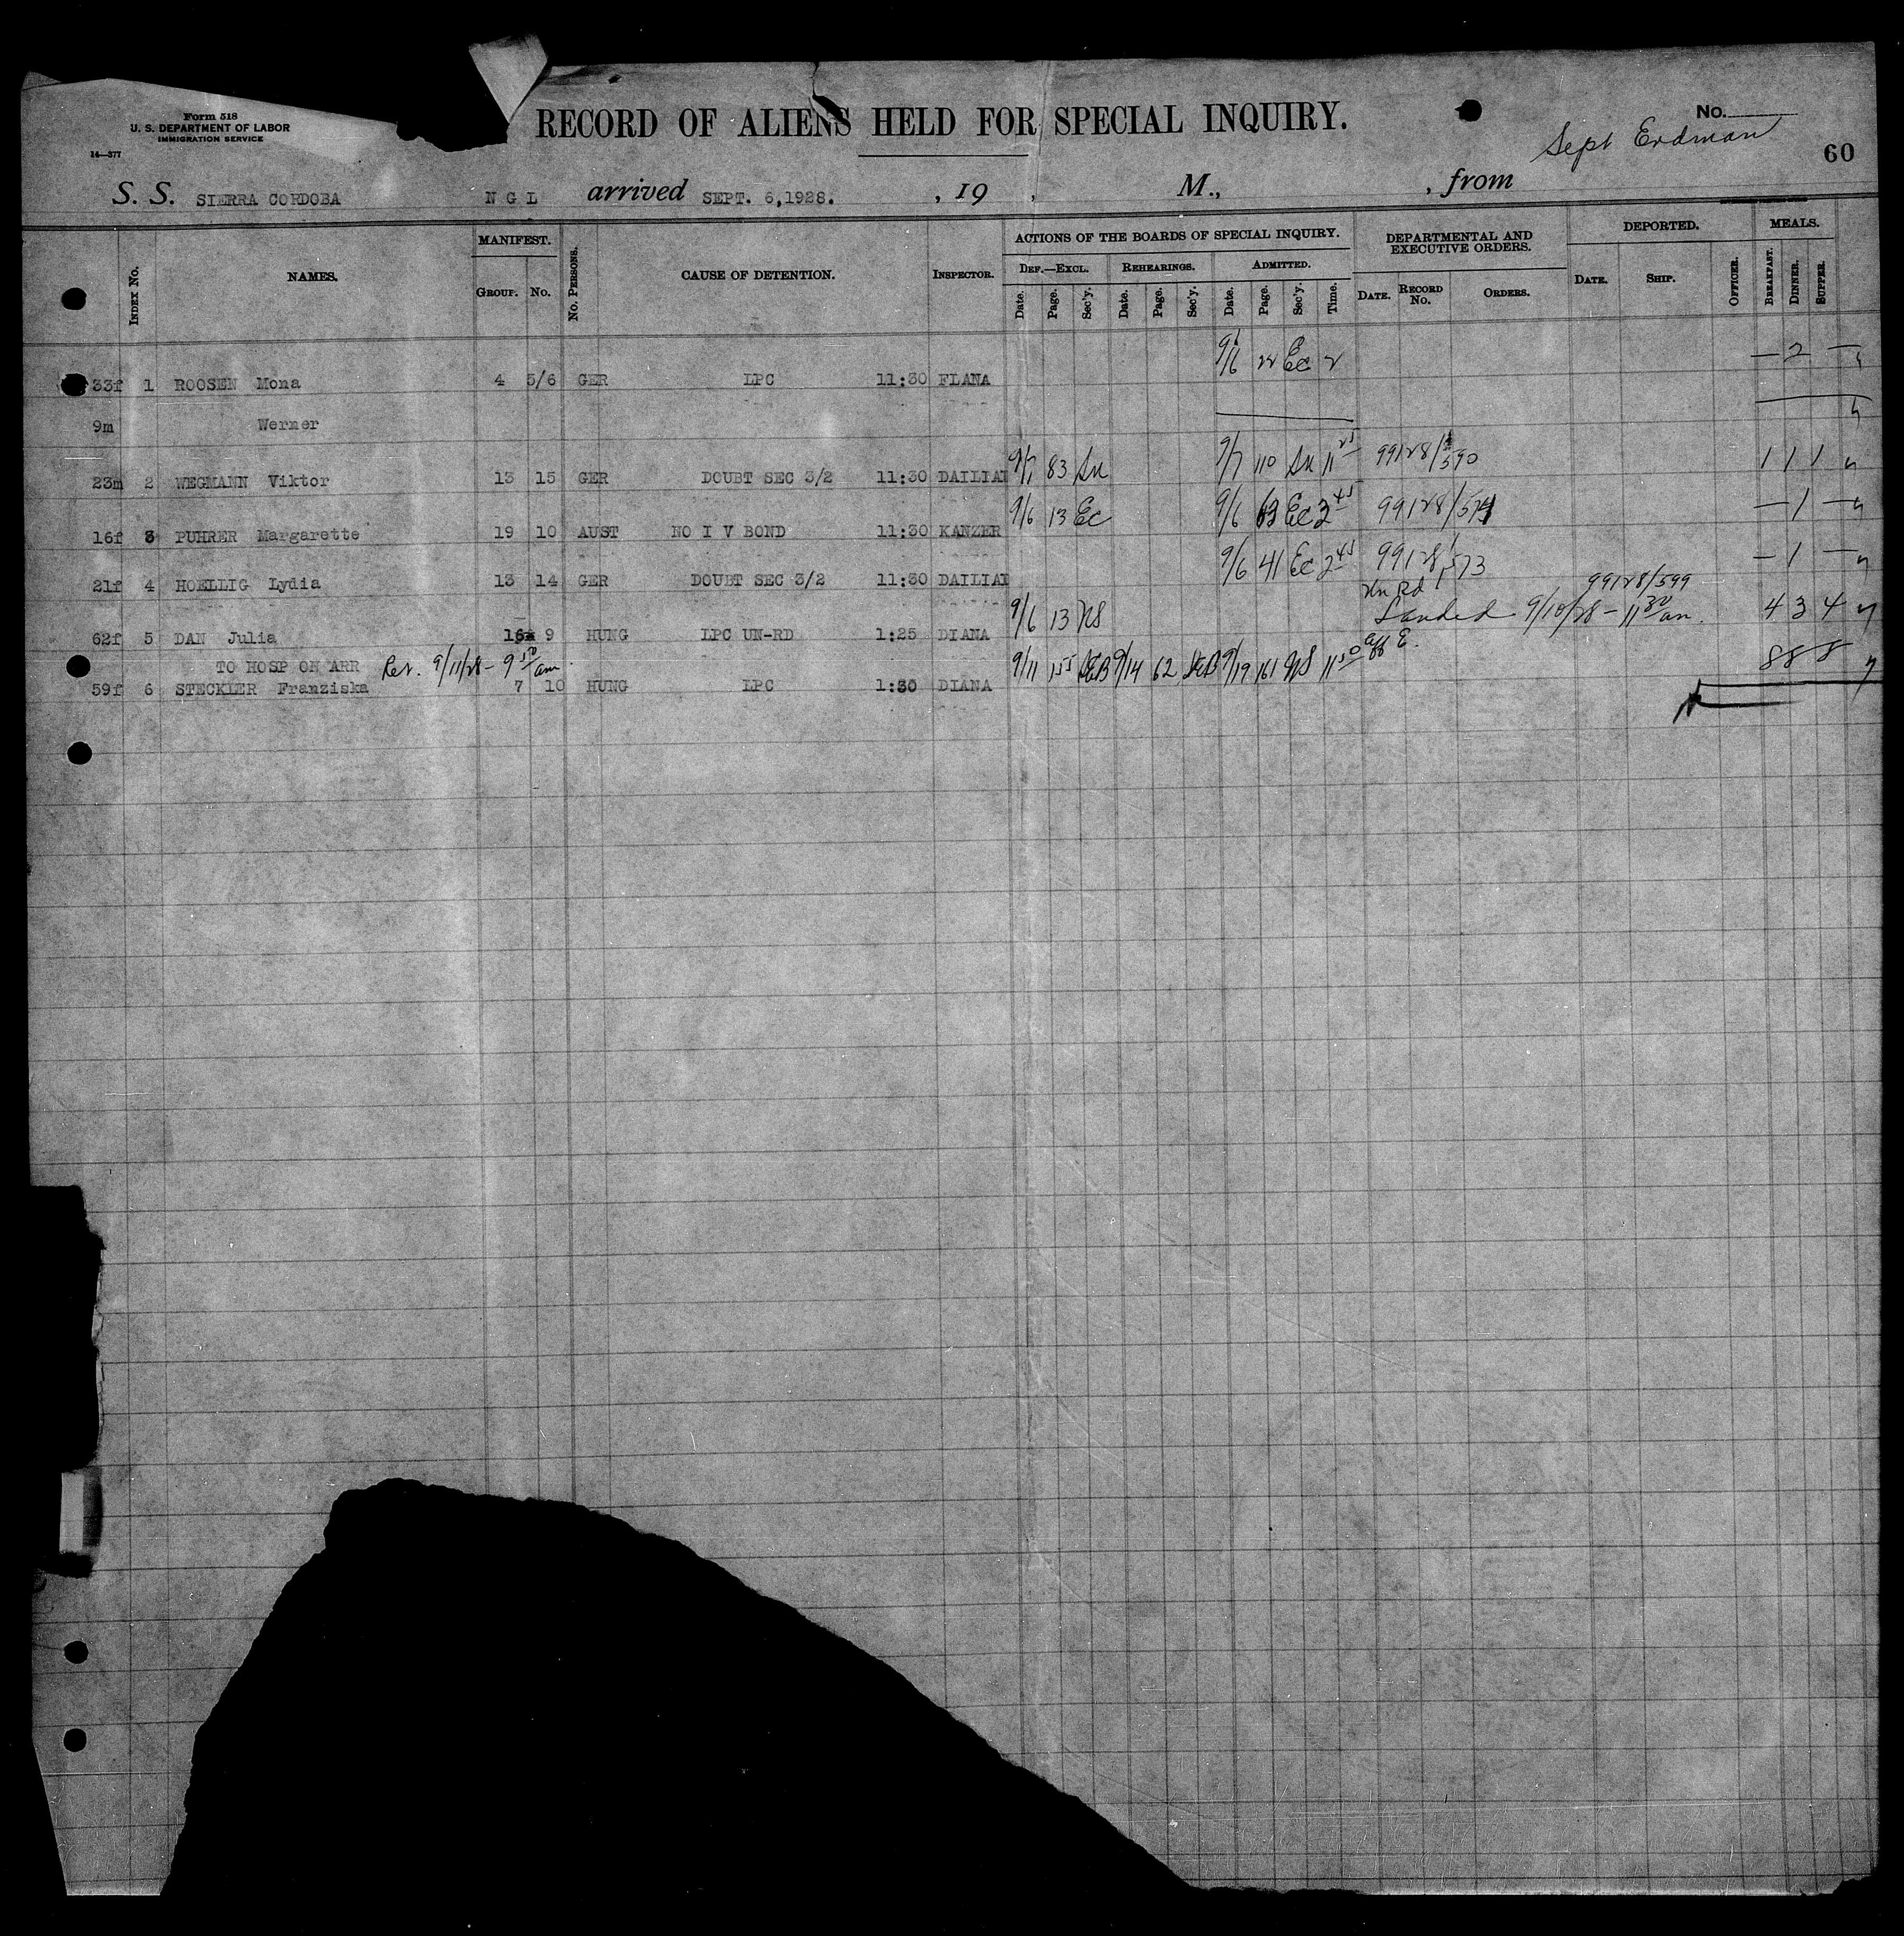 Form 518
U. S. DEPARTMENT OF LABOR
IMMIGRATION SERVICE
14—377
RECORD OF ALIENS HELD FOR SPECIAL INQUIRY.
No.
Sept Erdman
60
S. S. SIERRA CORDOBA N G L arrived SEPT. 6,1928. , 19 , M., , from
INDEX NO. NAMES. MANIFEST. GROUP. NO. NO. PERSONS. CAUSE OF DETENTION. INSPECTOR. ACTIONS OF THE BOARDS OF SPECIAL INQUIRY. DEPARTMENTAL AND EXECUTIVE ORDERS. DEPORTED. MEALS.
DEF.—EXCL. REHEARINGS. ADMITTED.
Date. Page. Sec'y. Date. Page. Sec'y. Date. Page. Sec'y. Time. DATE. RECORD NO. ORDERS. DATE. SHIP. OFFICER. BREAKFAST. DINNER. SUPPER.
33f 1 ROOSEN Mona 4 5/6 GER LPC 11:30 FLANA 9/6 22 Ec 2 — 2 —
9m Werner
23m 2 WEGMANN Viktor 13 15 GER DOUBT SEC 3/2 11:30 DAILIAI 9/7 83 9/7 110 11 25 99128/590 1 1 1
16f 3 PUHRER Margarette 19 10 AUST NO I V BOND 11:30 KANZER 9/6 13 Ec 9/6 63 Ec 2 45 99128/574 — 1 —
21f 4 HOELLIG Lydia 13 14 GER DOUBT SEC 3/2 11:30 DAILIAI 9/6 41 Ec 2 45 99128/573 — 1 —
62f 5 DAN Julia 16 9 HUNG LPC UN-RD 1:25 DIANA 9/6 13 NS Un Rd 99128/599 Landed 9/10/28 – 11 30 am. 4 3 4
TO HOSP ON ARR Ret. 9/11/28 – 9 50 am.
59f 6 STECKLER Franziska 7 10 HUNG LPC 1:30 DIANA 9/11 155 SEB 9/14 62 SEB 9/19 161 NS 11 50 Aff E. 8 8 8